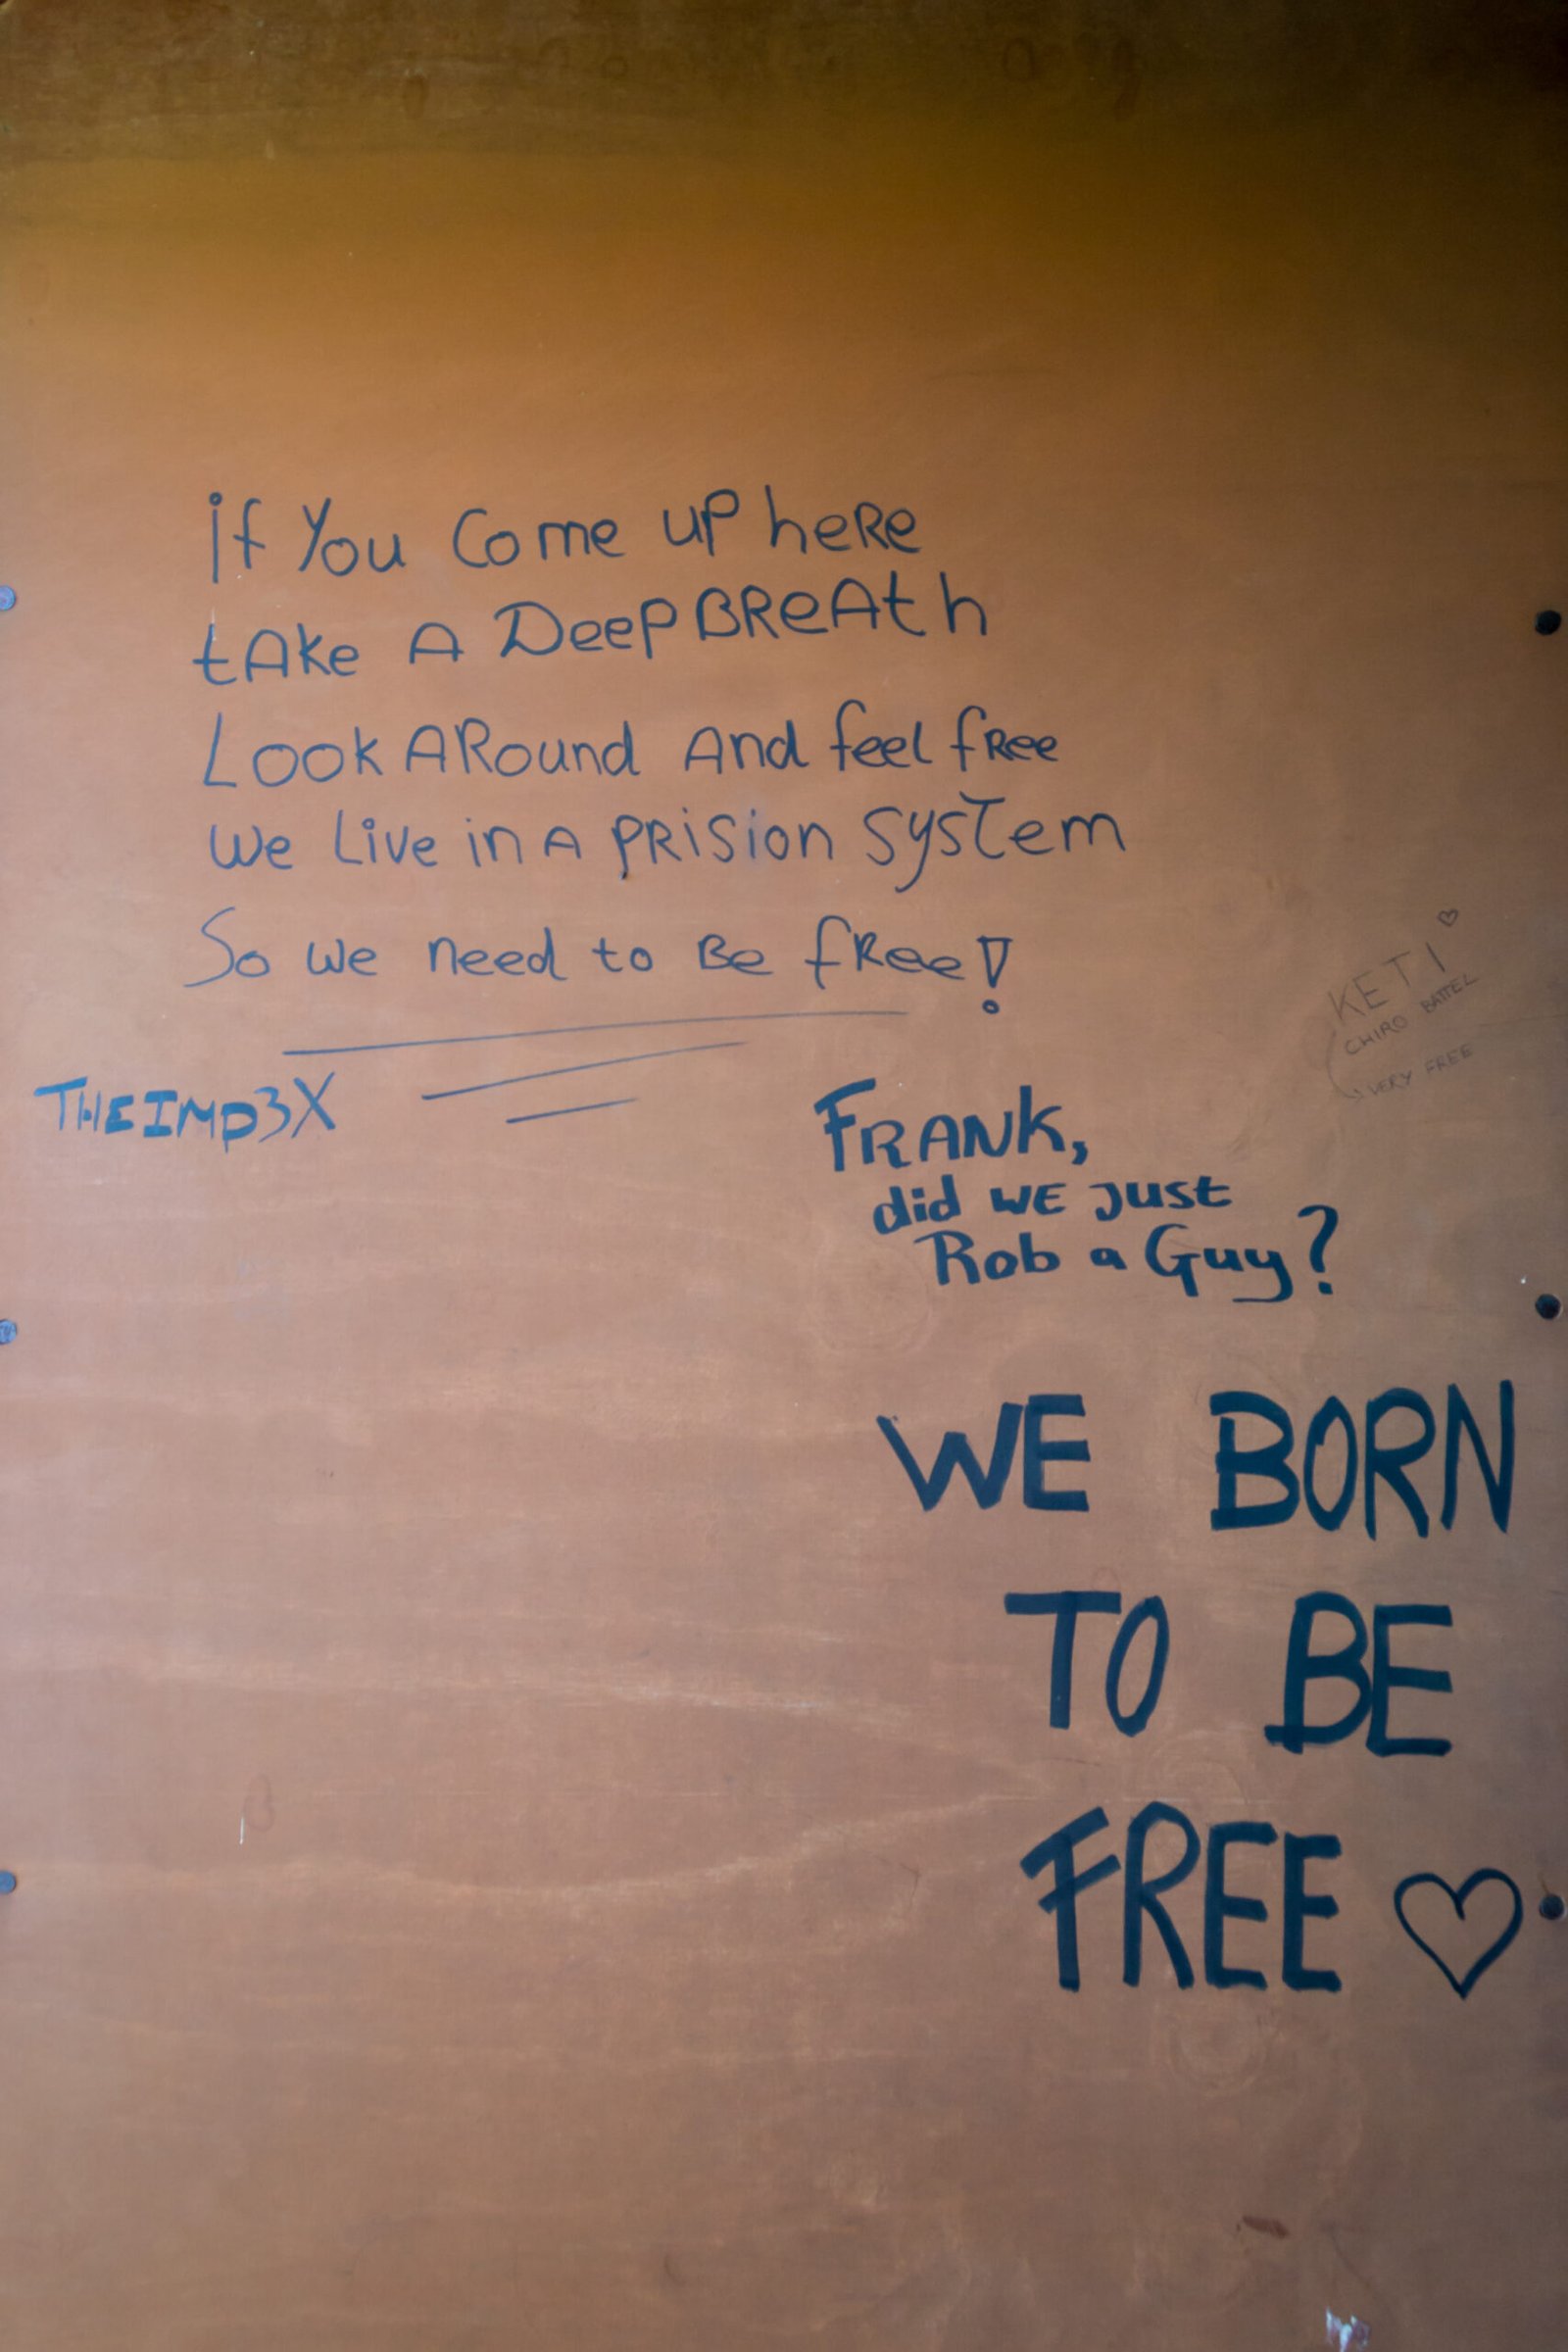 if You Come up heRe
tAke A Deep BReAth
Look ARound And feel fRee
We Live in A PRiSion SysTem
So we need to Be fRee!
THEIMP3X
KETI
CHIRO BATTEL
VERY FREE
FRANK,
did WE Just
Rob a Guy?
WE BORN
TO BE
FREE